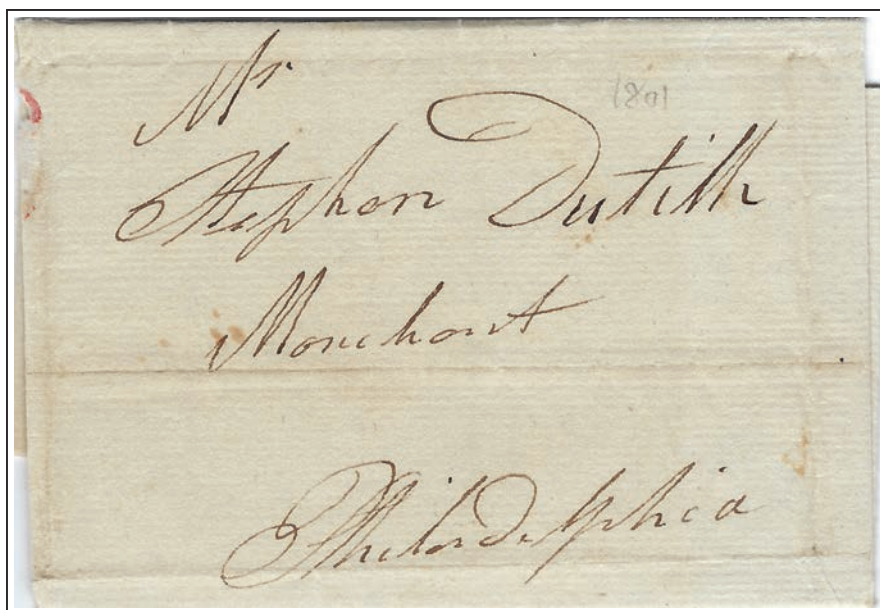 Mr
1801
Stephen Dutilh
Merchant
Philadelphia